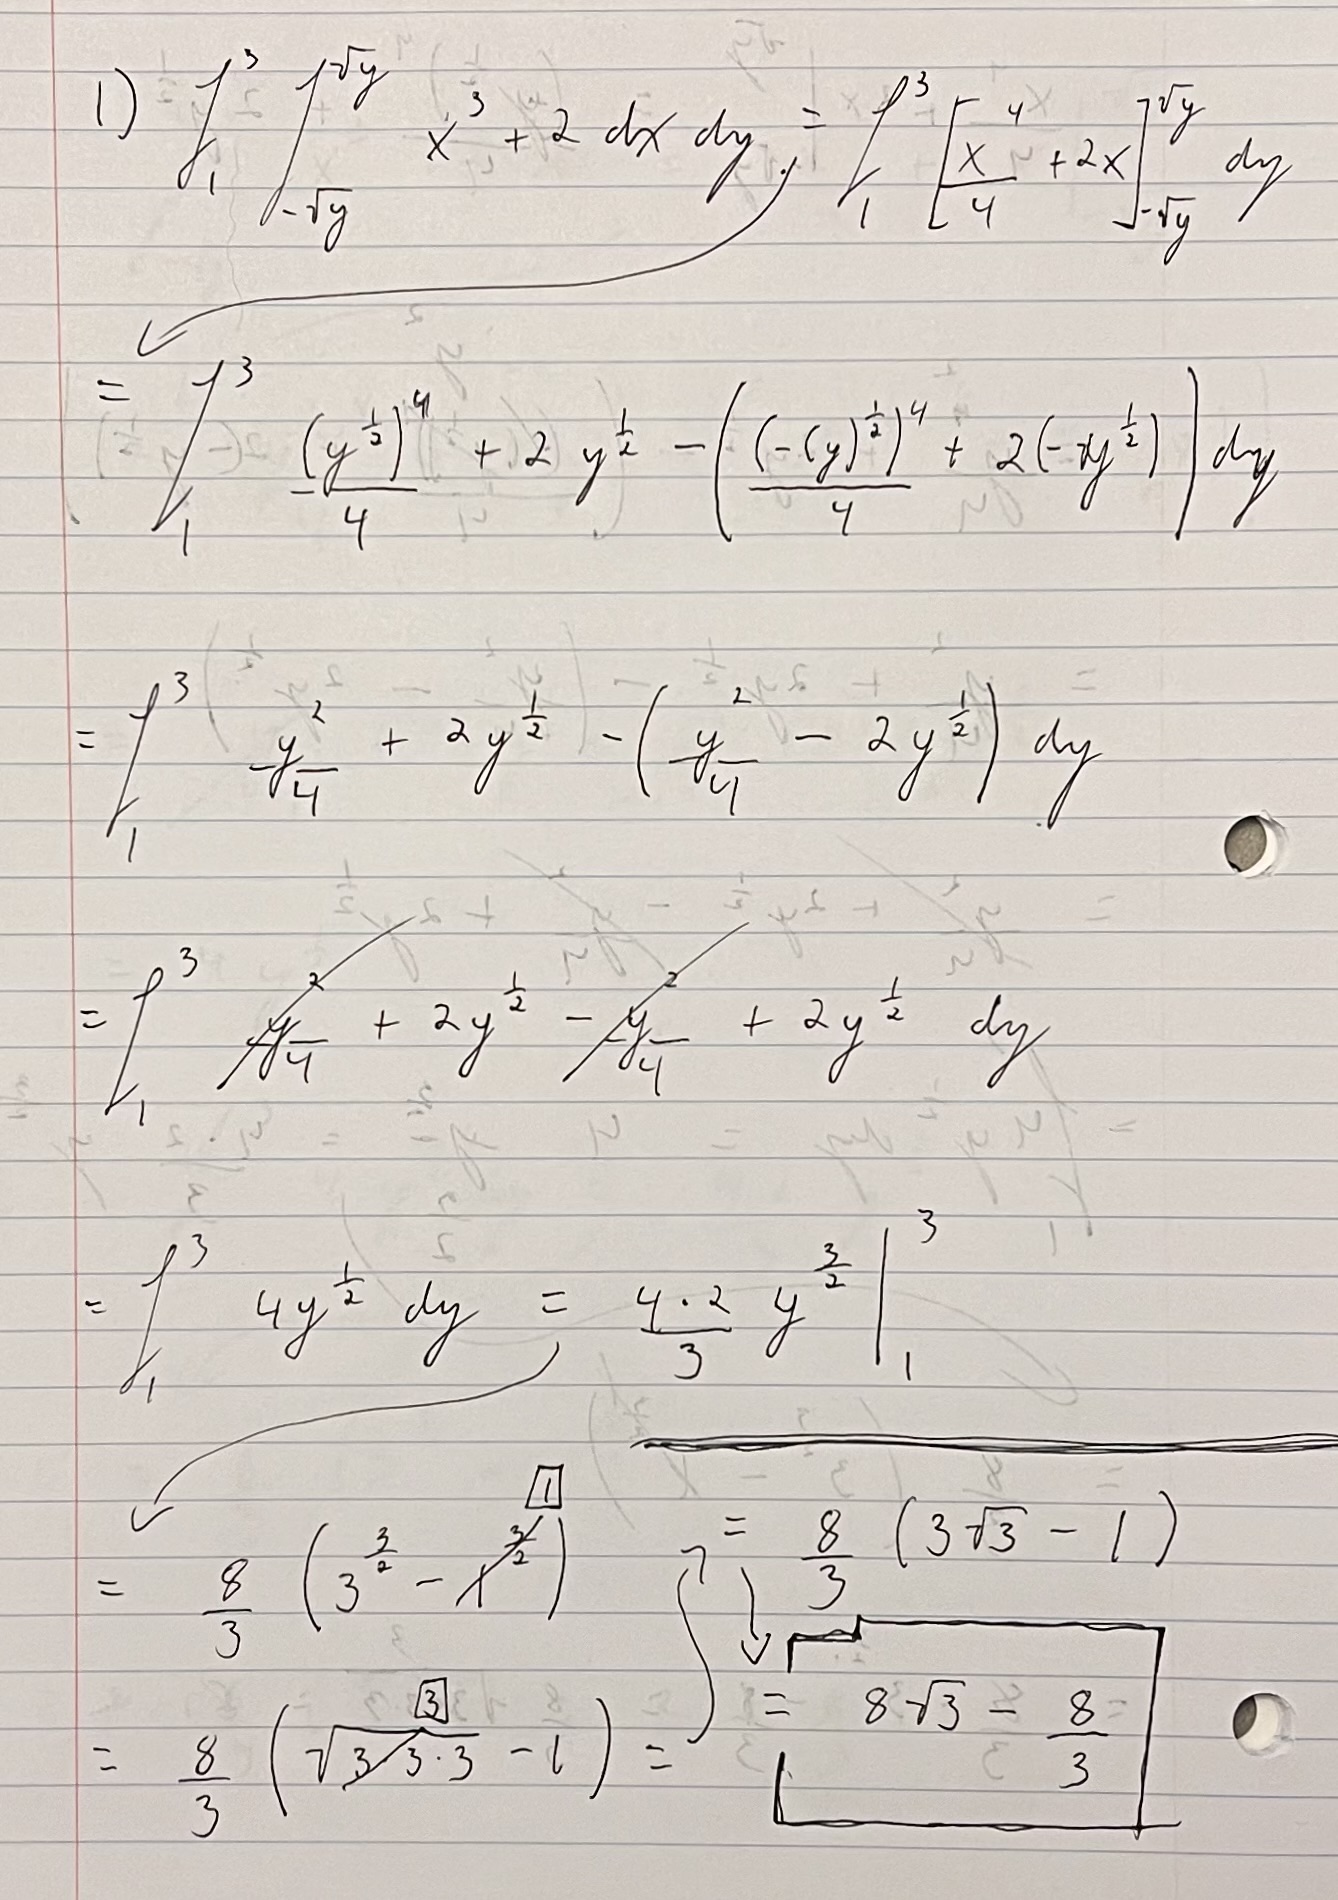 1) ∫₁³ ∫_{-√y}^{√y} x³ + 2 dx dy = ∫₁³ [x⁴/4 + 2x]_{-√y}^{√y} dy
= ∫₁³ (y^{1/2})⁴/4 + 2 y^{1/2} - ((-(y)^{1/2})⁴/4 + 2(-y^{1/2})) dy
= ∫₁³ y²/4 + 2y^{1/2} - (y²/4 - 2y^{1/2}) dy
= ∫₁³ y²/4 + 2y^{1/2} - y²/4 + 2y^{1/2} dy
= ∫₁³ 4y^{1/2} dy = 4·2/3 y^{3/2} |₁³
= 8/3 (3^{3/2} - 1^{3/2}) 1
= 8/3 (√3·3·3 - 1) = 3
= 8/3 (3√3 - 1)
= 8√3 - 8/3